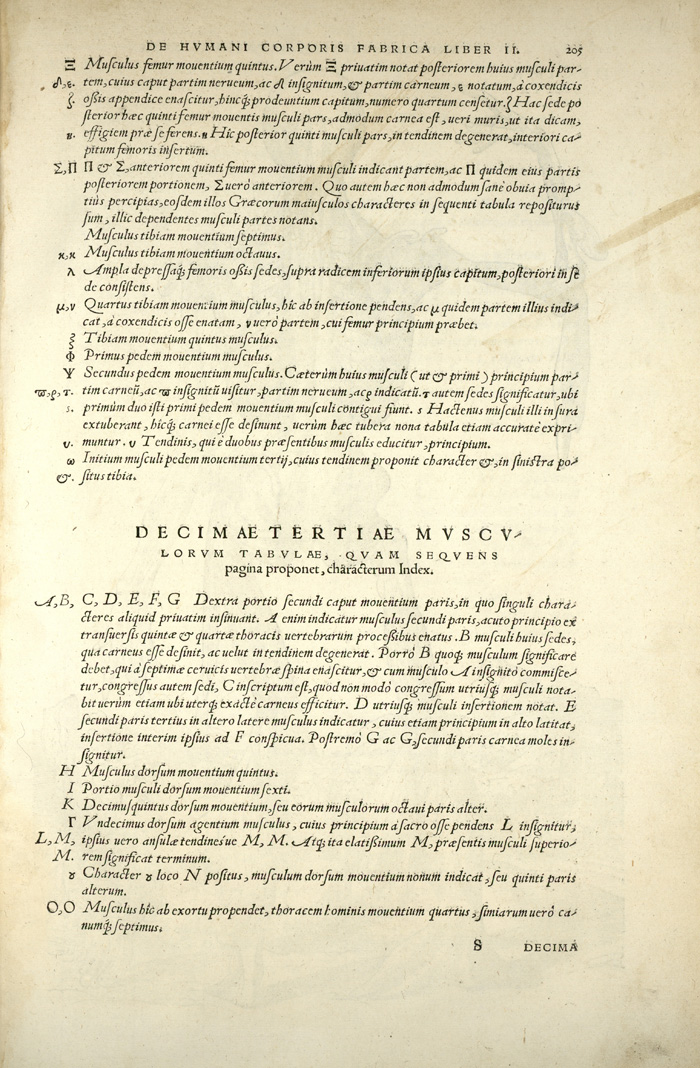 DE HVMANI CORPORIS FABRICA LIBER II. 205
Ξ Musculus femur mouentium quintus. Verùm Ξ priuatim notat posteriorem huius musculi par-
δ, ε. tem, cuius caput partim nerueum, ac δ insignitum, & partim carneum, ε notatum, à coxendicis
ζ. oßis appendice enascitur, hincq́; prodeuntium capitum, numero quartum censetur. ζ Hac sede po
sterior hæc quinti femur mouentis musculi pars, admodum carnea est, ueri muris, ut ita dicam,
η. effigiem præ se ferens. η Hic posterior quinti musculi pars, in tendinem degenerat, interiori ca-
pitum femoris insertum.
Σ, Π Π & Σ, anteriorem quinti femur mouentium musculi indicant partem, ac Π quidem eius partis
posteriorem portionem, Σ uerò anteriorem. Quo autem hæc non admodum sanè obuia promp-
tius percipias, eosdem illos Græcorum maiusculos characteres in sequenti tabula repositurus
sum, illic dependentes musculi partes notans.
Musculus tibiam mouentium septimus.
κ, κ Musculus tibiam mouentium octauus.
λ Ampla depressaq́; femoris oßis sedes, supra radicem inferiorum ipsius capitum, posteriori in se
de consistens.
μ, ν Quartus tibiam mouentium musculus, hîc ab insertione pendens, ac μ quidem partem illius indi-
cat, à coxendicis osse enatam, ν uerò partem, cui femur principium præbet.
ξ Tibiam mouentium quintus musculus.
Φ Primus pedem mouentium musculus.
Ψ Secundus pedem mouentium musculus. Cæterùm huius musculi (ut & primi) principium par-
ϖ, ρ, τ. tim carneũ, ac ϖ insignitũ uisitur, partim nerueum, ac ρ indicatũ. τ autem sedes significatur, ubi
s. primùm duo isti primi pedem mouentium musculi contigui fiunt. s Hactenus musculi illi in sura
extuberant, hicq́; carnei esse desinunt, uerùm hæc tubera nona tabula etiam accuratè expri-
υ. muntur. υ Tendinis, qui è duobus præsentibus musculis educitur, principium.
ω Initium musculi pedem mouentium tertij, cuius tendinem proponit character &, in sinistra po-
&. situs tibia.
DECIMAE TERTIAE MVSCV-
LORVM TABVLAE, QVAM SEQVENS
pagina proponet, characterum Index.
A, B, C, D, E, F, G Dextra portio secundi caput mouentium paris, in quo singuli chara-
cteres aliquid priuatim insinuant. A enim indicatur musculus secundi paris, acuto principio ex
transuersis quintæ & quartæ thoracis uertebrarum processibus enatus. B musculi huius sedes,
qua carneus esse desinit, ac uelut in tendinem degenerat. Porrò B quoq́; musculum significare
debet, qui à septimæ ceruicis uertebræ spina enascitur, & cum musculo A insignito commisce-
tur, congressus autem sedi, C inscriptum est, quod non modò congressum utriusq́; musculi nota-
bit uerùm etiam ubi uterq́; exactè carneus efficitur. D utriusq́; musculi insertionem notat. E
secundi paris tertius in altero latere musculus indicatur, cuius etiam principium in alto latitat,
insertione interim ipsius ad F conspicua. Postremò G ac G, secundi paris carnea moles in-
signitur.
H Musculus dorsum mouentium quintus.
I Portio musculi dorsum mouentium sexti.
K Decimusquintus dorsum mouentium, seu eorum musculorum octaui paris alter.
Γ Vndecimus dorsum agentium musculus, cuius principium à sacro osse pendens L insignitur,
L, M, ipsius uero ansulæ tendinesue M, M. Atq́; ita elatißimum M, præsentis musculi superio-
M. rem significat terminum.
ȣ Character ȣ loco N positus, musculum dorsum mouentium nonum indicat, seu quinti paris
alterum.
O, O Musculus hîc ab exortu propendet, thoracem hominis mouentium quartus, simiarum uerò ca-
numq́; septimus.
S DECIMA